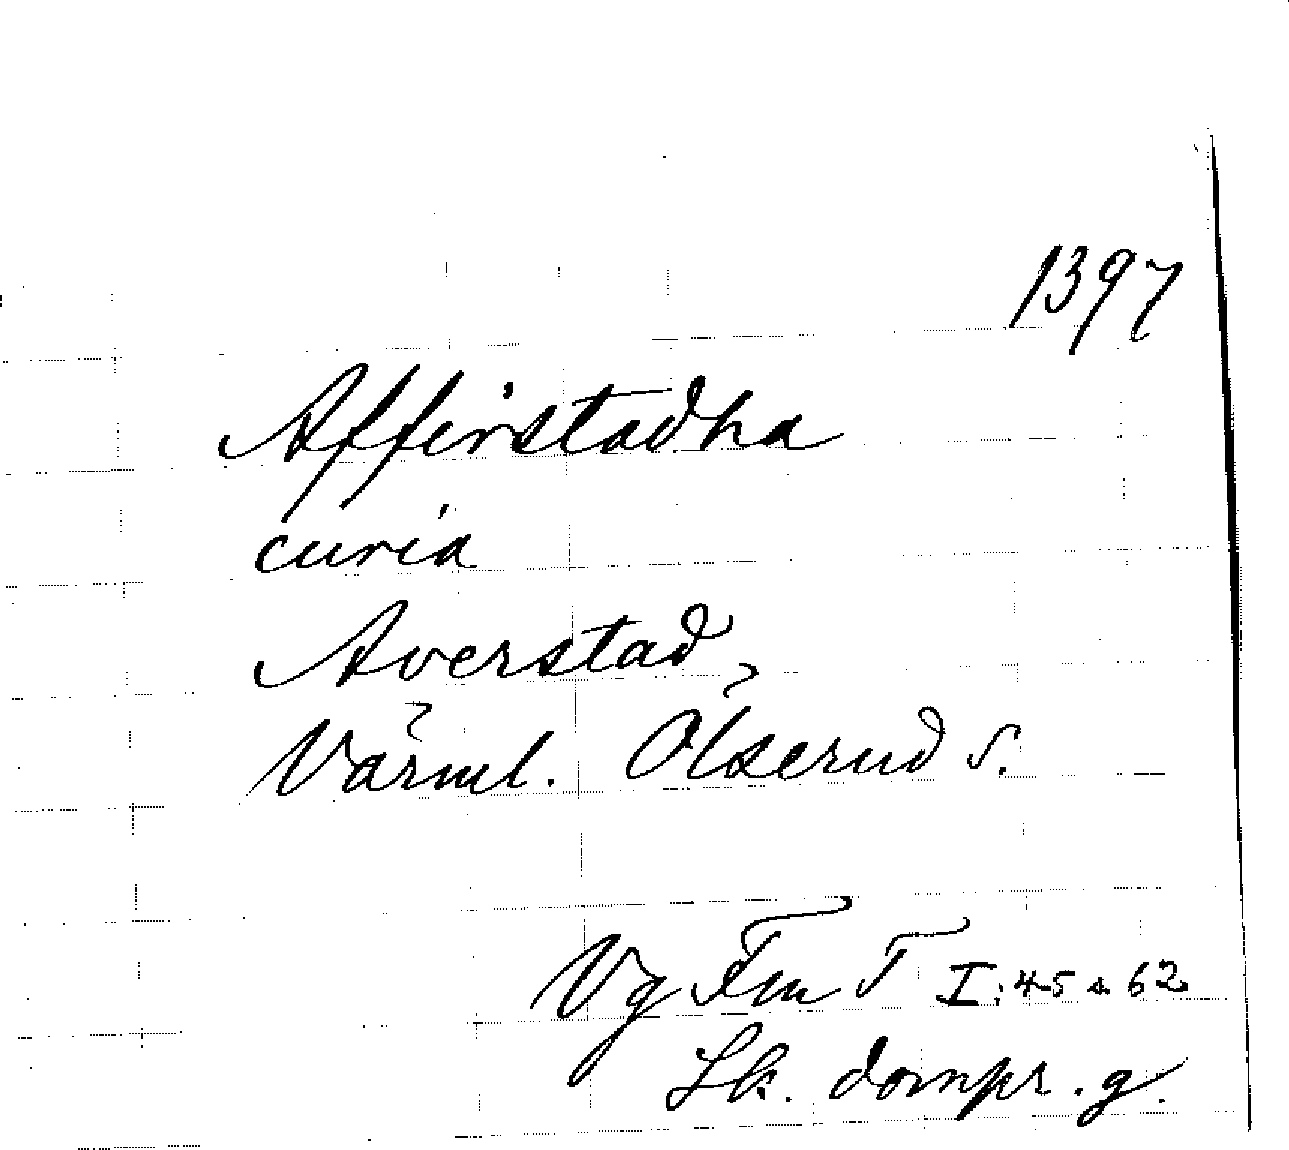 1397
Affirstadha
curia
Averstad,
Värml. Ölserud s.
Vg Fm T I:45 a 62
Sk. dompr. g.